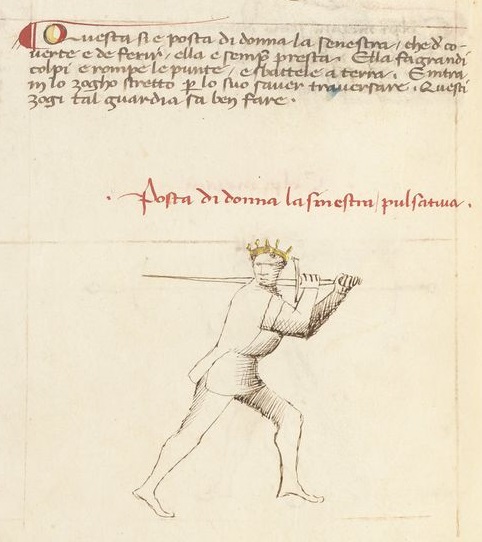 Questa si e posta di donna la senestra, che d' co-
verte e de ferir, ella e semp̃ presta. Ella fa grandi
colpi e rompe le punte, e sbattele a terra. E intra
in lo zogho stretto p̱ lo suo saver traversare. Questi
zogi tal guardia sa ben fare.
Posta di donna la sinestra, pulsativa.